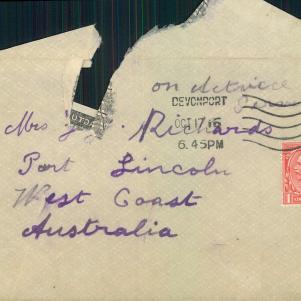 on Active
DEVONPORT
OCT 17 16
6.45 PM
Mrs J. Richards
Port Lincoln
West Coast
Australia